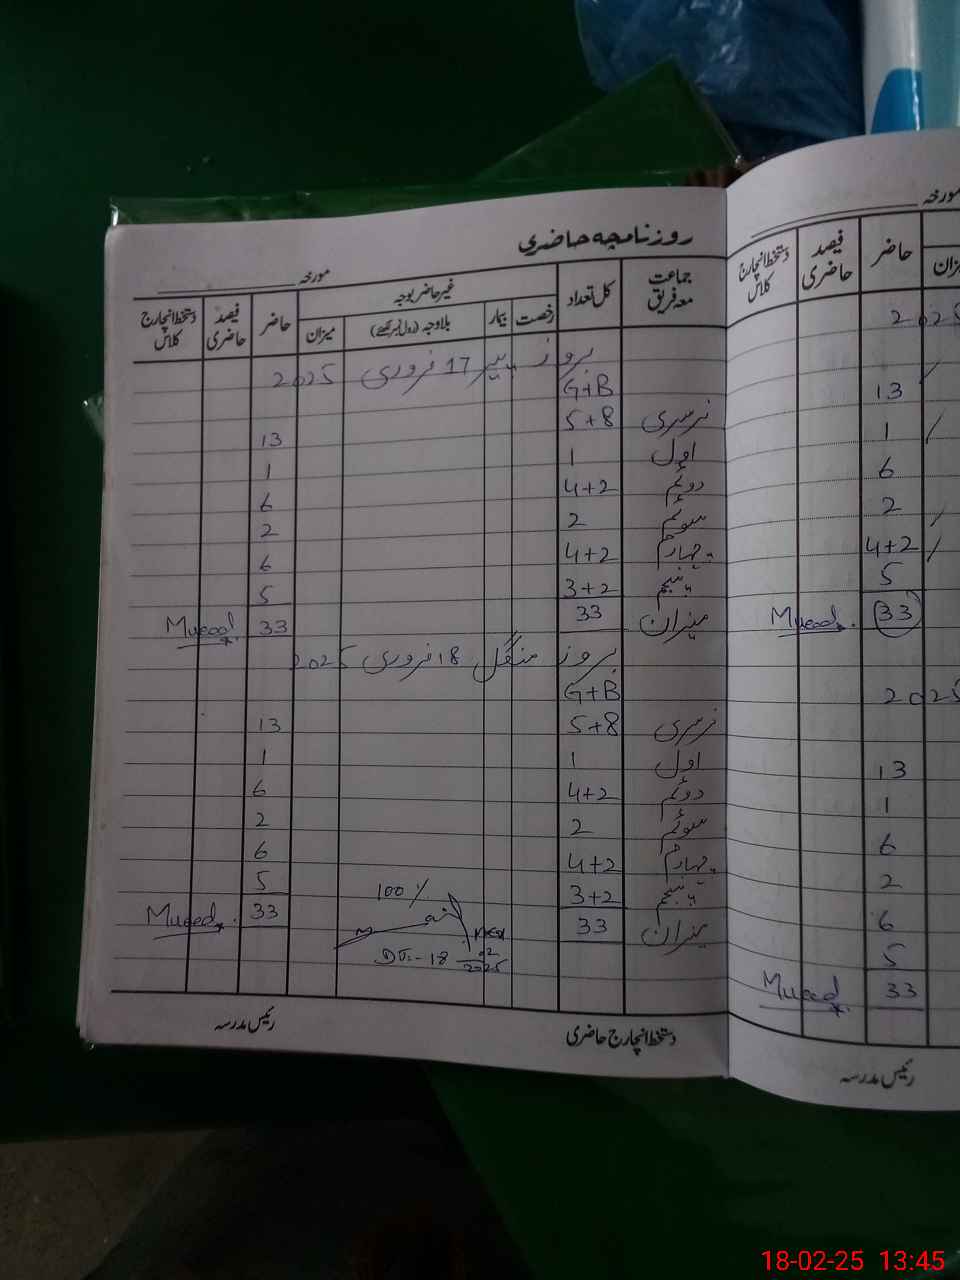 روزنامچہ حاضری
مورخہ
جماعت معہ فریق کل تعداد غیر حاضر بوجہ حاضر فیصد حاضری دستخط انچارج کلاس
رخصت بیمار بلاوجہ (رول نمبر لکھیئے) میزان
بروز پیر 17 فروری 2025
G+B
نرسری 5+8 13
اول 1 1
دوئم 4+2 6
سوئم 2 2
چہارم 4+2 6
پنجم 3+2 5
میزان 33 33 Mueed
بروز منگل 18 فروری 2025
G+B
نرسری 5+8 13
اول 1 1
دوئم 4+2 6
سوئم 2 2
چہارم 4+2 6
پنجم 3+2 5
100 %
میزان 33 33 Mueed
DT:-18 02 2025
دستخط انچارج حاضری رئیس مدرسہ
مورخہ
میزان حاضر فیصد حاضری دستخط انچارج کلاس
2025
13
1
6
2
4+2
5
33 Mueed
2025
13
1
6
2
6
5
33 Mueed
رئیس مدرسہ
18-02-25 13:45